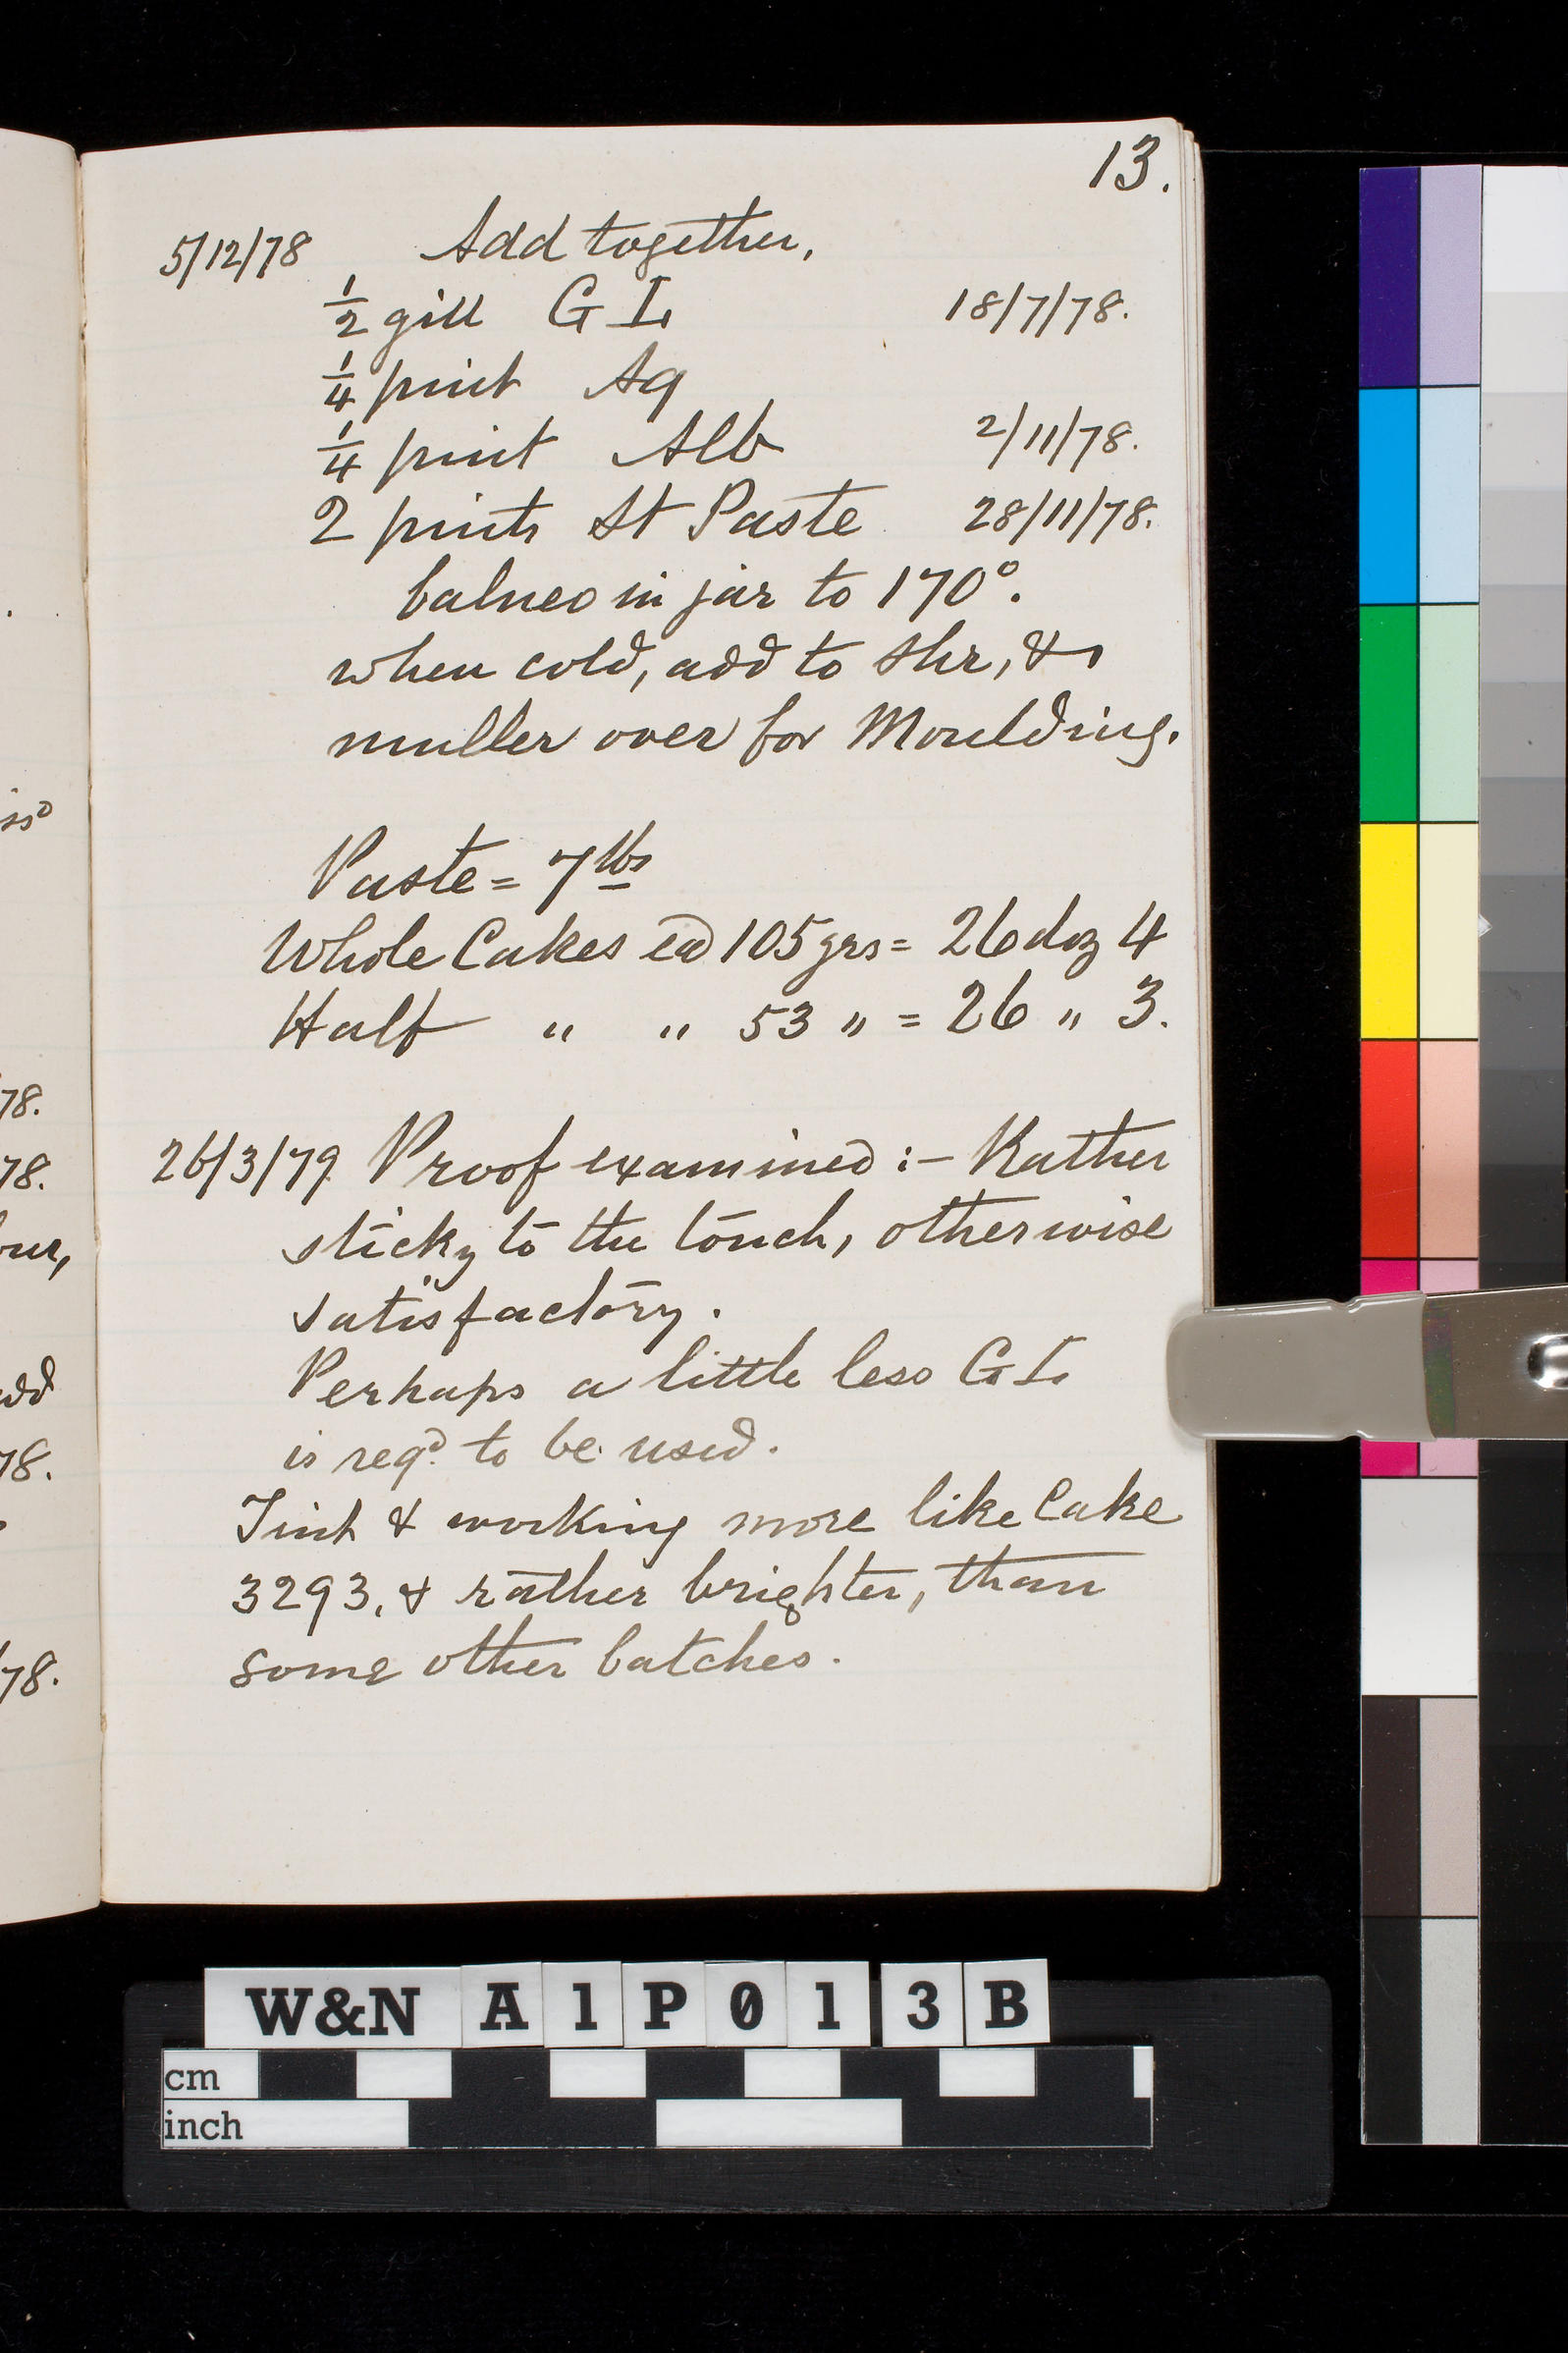 13.
5/12/78 Add together,
½ gill G I, 18/7/78.
¼ pint Aq
¼ pint Alb 2/11/78.
2 pints St Paste 28/11/78.
balneo in jar to 170°.
when cold, add to Shr, &,
muller over for Moulding.
Paste = 7 lbs
Whole Cakes ea 105 grs = 26 doz 4
Half " " 53 " = 26 " 3.
26/3/79 Proof examined :- Rather
sticky to the touch, otherwise
satisfactory.
Perhaps a little less G I,
is reqd. to be used.
Tint & working more like Cake
3293, & rather brighter, than
some other batches.
.
issd
78.
78.
our,
add
78.
78.
W&N A1P013B
cm
inch